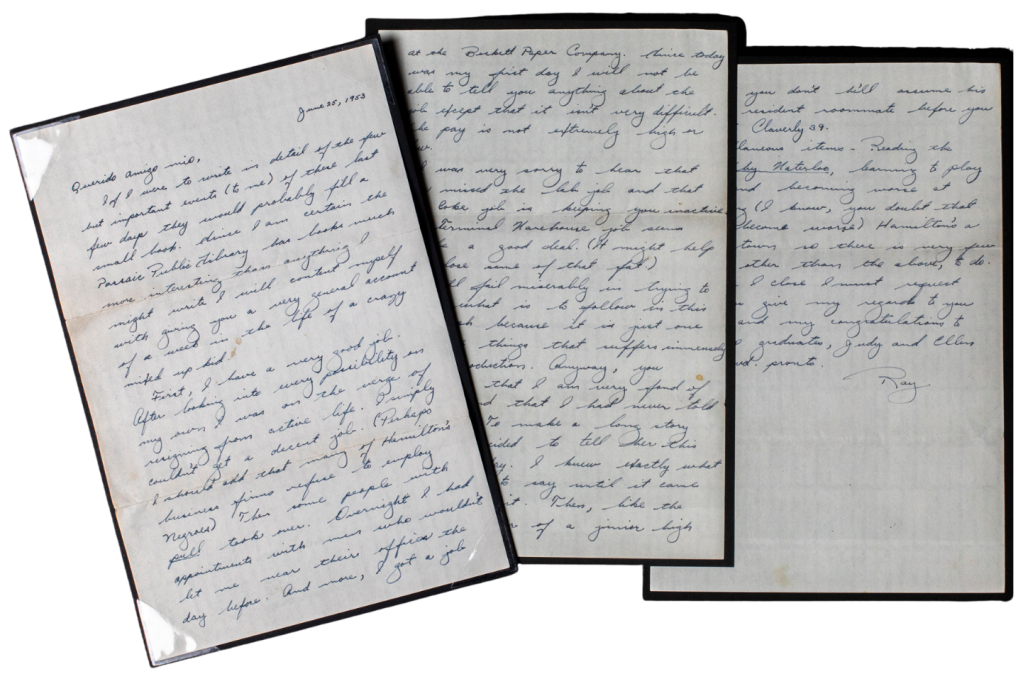 June 25, 1953
Querido amigo mio,
If I were to write in detail of the few
but important events (to me) of these last
few days they would probably fill a
small book. Since I am certain the
Passaic Public Library has books much
more interesting than anything I
might write I will content myself
with giving you a very general account
of a week in the life of a crazy
mixed up kid.
First, I have a very good job.
After looking into every possibility on
my own I was on the verge of
resigning from active life. I simply
couldn't get a decent job. (Perhaps
I should add that many of Hamilton's
business firms refuse to employ
Negroes) Then some people with
pull took over. Overnight I had
appointments with men who wouldn't
let me near their offices the
day before. And more, I got a job
at the Beckett Paper Company. Since today
was my first day I will not be
able to tell you anything about the
except that it isn't very difficult.
pay is not extremely high or
was very sorry to hear that
missed the lab job and that
Coke job is keeping you inactive
Terminal Warehouse job seems
a good deal. (It might help
lose some of that fat)
fail miserably in trying to
what is to follow in this
because it is just one
things that suffers immensely
Anyway, you
that I am very fond of
that I had never told
To make a long story
to tell her this
I knew exactly what
to say until it came
it. Then, like the
of a junior high
you don't I'll assume his
resident roommate before you
Claverly 39.
items - Reading the
learning to play
becoming worse at
(I know, you doubt that
become worse) Hamilton's a
town so there is very few
other than the above, to do.
I close I must request
give my regards to you
and my congratulations to
graduates, Judy and Ellen
pronto.
Ray